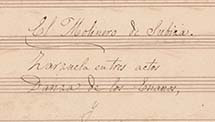 El Molinero de Subiza.
Zarzuela en tres actos
Danza de los Enanos,
y